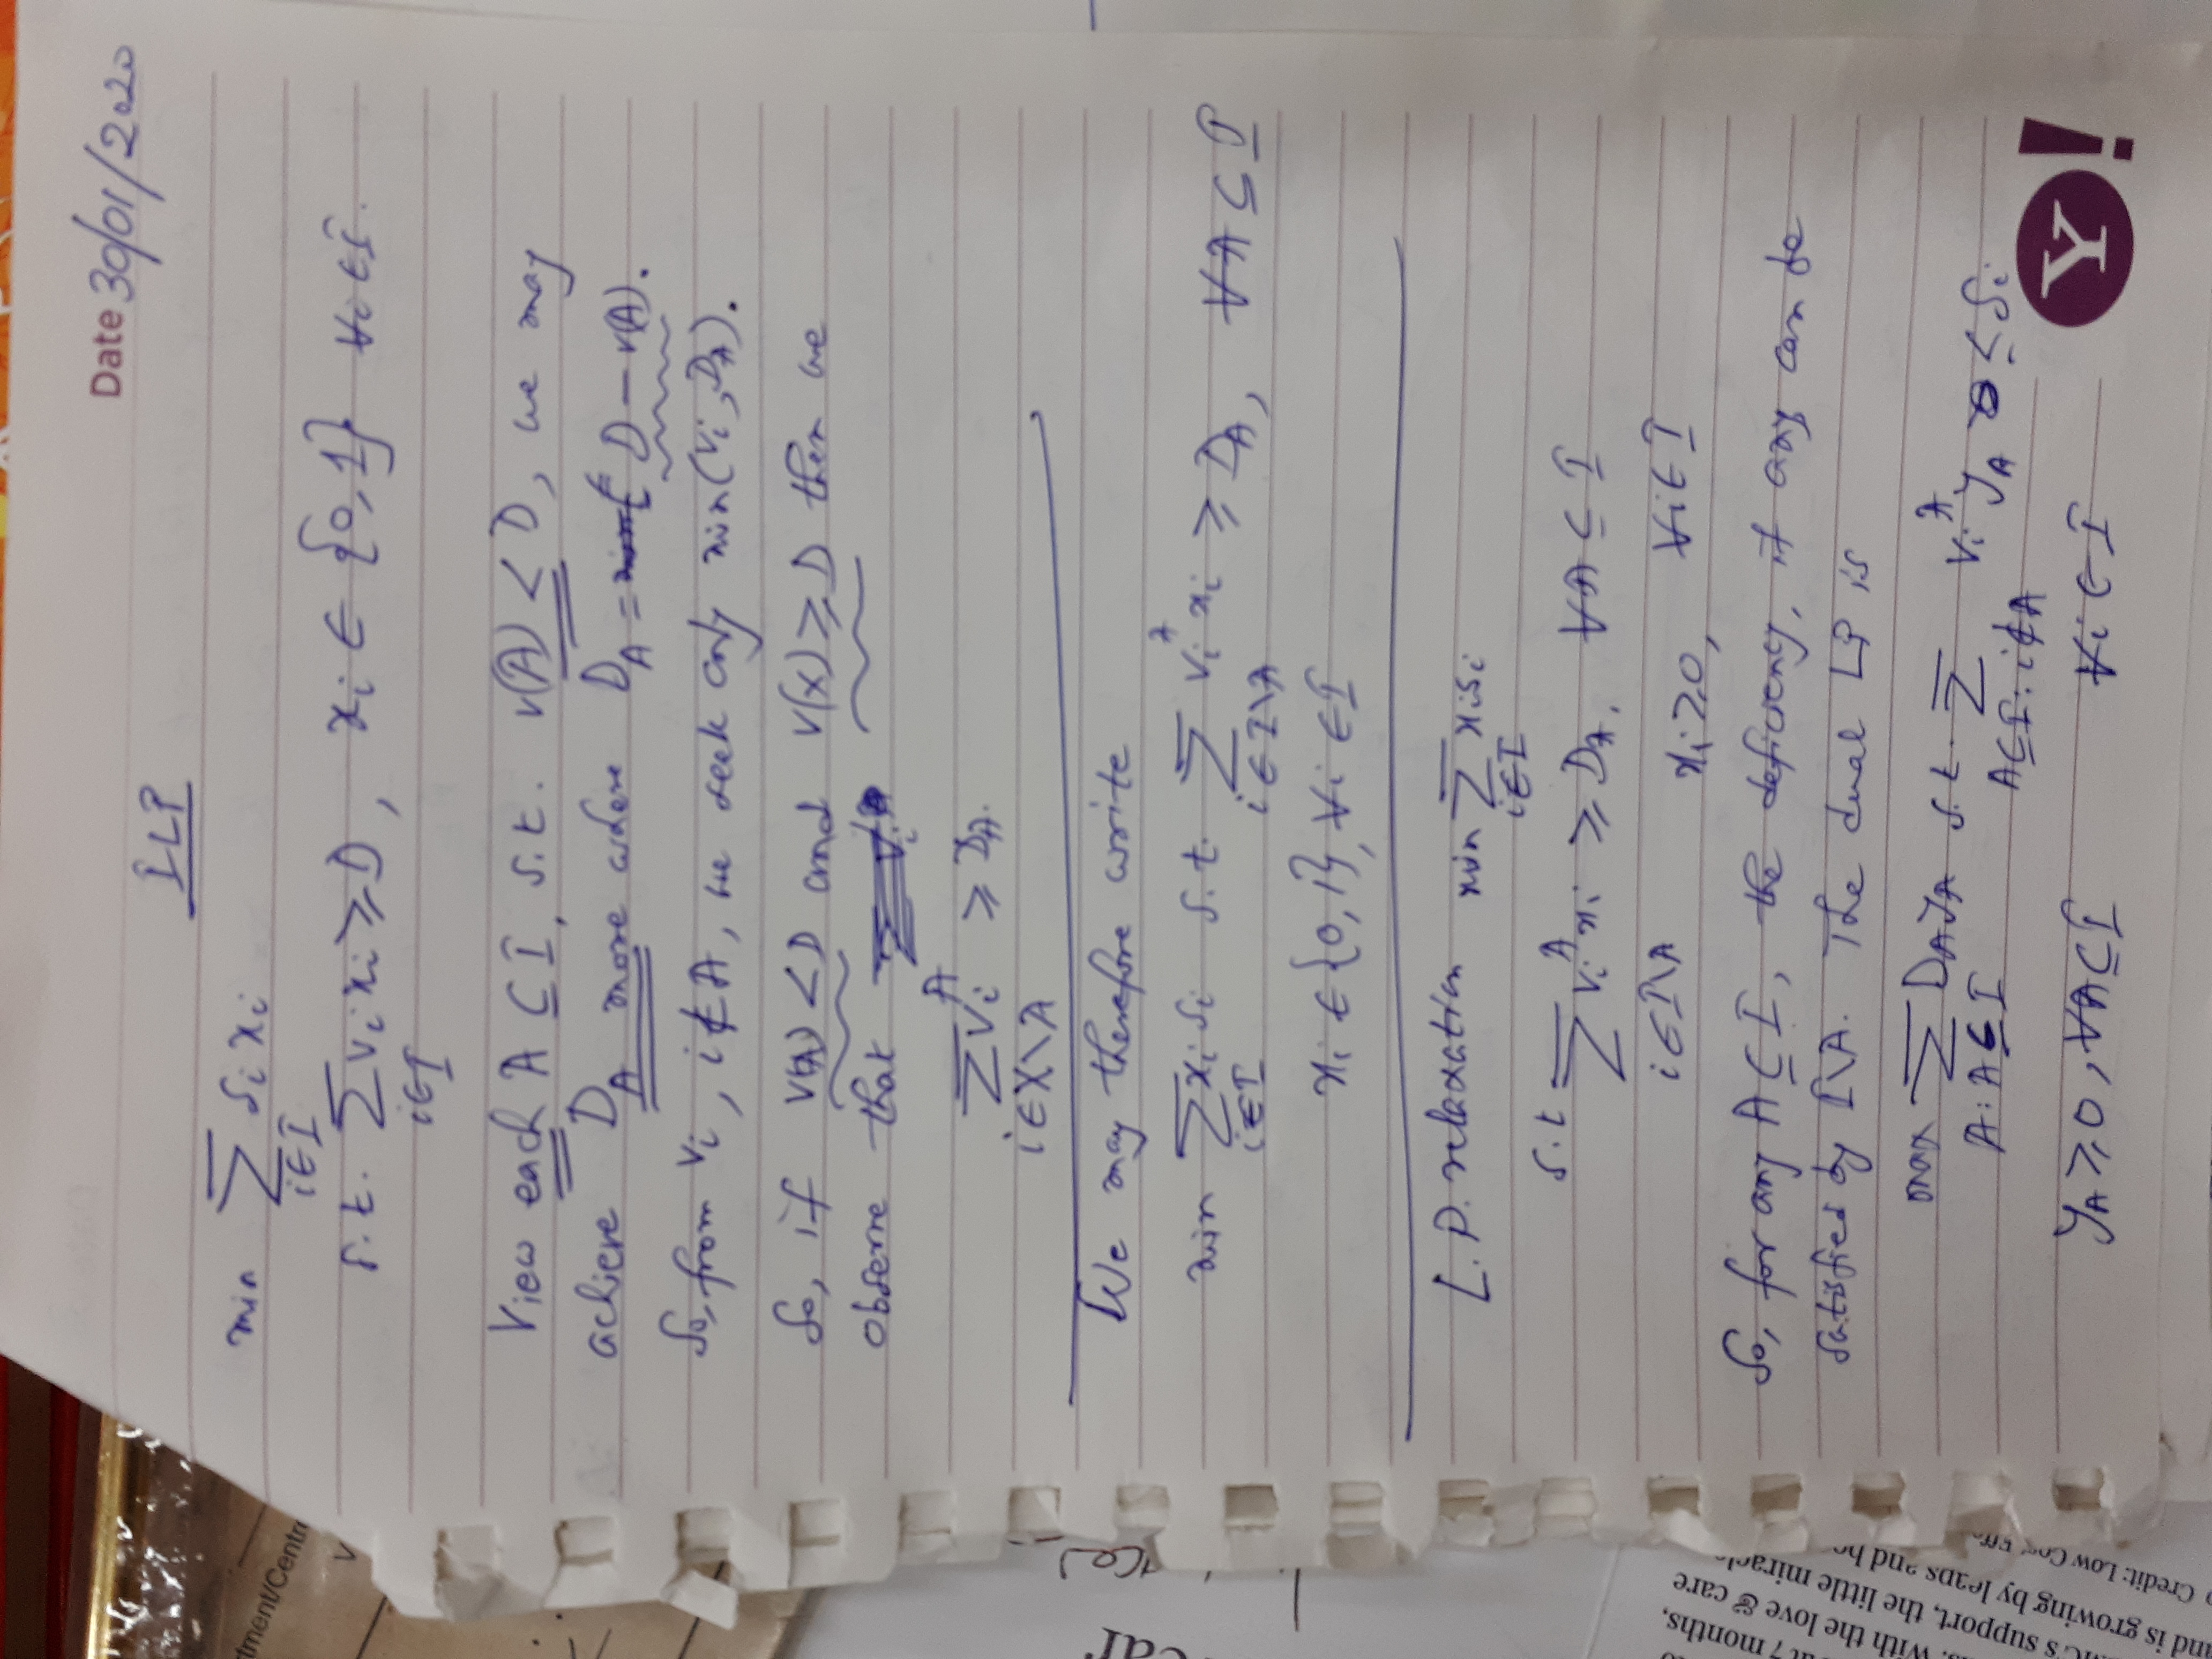 Date 30/01/2020
ILP
min ∑ sᵢ xᵢ
i∈I
s.t. ∑ vᵢ xᵢ ≥ D, xᵢ ∈ {0,1} ∀i ∈ I.
i∈I
View each A ⊆ I, s.t. v(A) < D, we may
achieve D_A more where D_A = D − v(A).
So, from vᵢ, i ∉ A, we seek only min(vᵢ, D_A).
So, if v(A) < D and v(X) ≥ D then we
observe that
∑ vᵢ^A ≥ D_A.
i ∈ X\A
We may therefore write
min ∑ xᵢ sᵢ s.t. ∑ vᵢ^A xᵢ ≥ D_A, ∀A ⊆ I
i∈I i ∈ I\A
xᵢ ∈ {0,1}, ∀i ∈ I
L.P. relaxation min ∑ xᵢ sᵢ
i∈I
s.t ∑ vᵢ^A xᵢ ≥ D_A, ∀A ⊆ I
i ∈ I\A xᵢ ≥ 0, ∀i ∈ I
So, for any A ⊆ I, the deficiency, if any can be
satisfied by I\A. The dual LP is
max ∑ D_A y_A s.t. ∑ vᵢ^A y_A ≤ sᵢ
A: A ⊆ I A ⊆ I: i ∉ A
y_A ≥ 0, ∀A ⊆ I ∀i ∈ I
Y!
tment/Centre
at 7 months,
With the love & care
MC's support, the little miracle
and is growing by leaps and
Credit: Low Cost